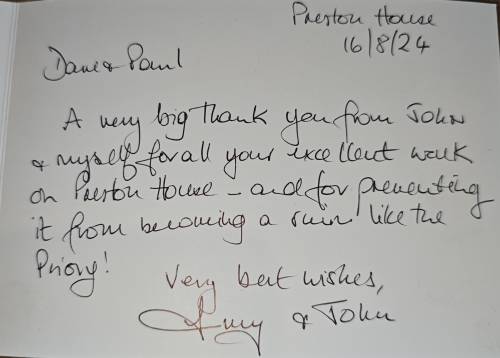 Preston House
16/8/24
Dave & Paul
A very big Thank you from John
& myself for all your excellent work
on Preston House – and for preventing
it from becoming a ruin like the
Priory!
Very best wishes,
& John